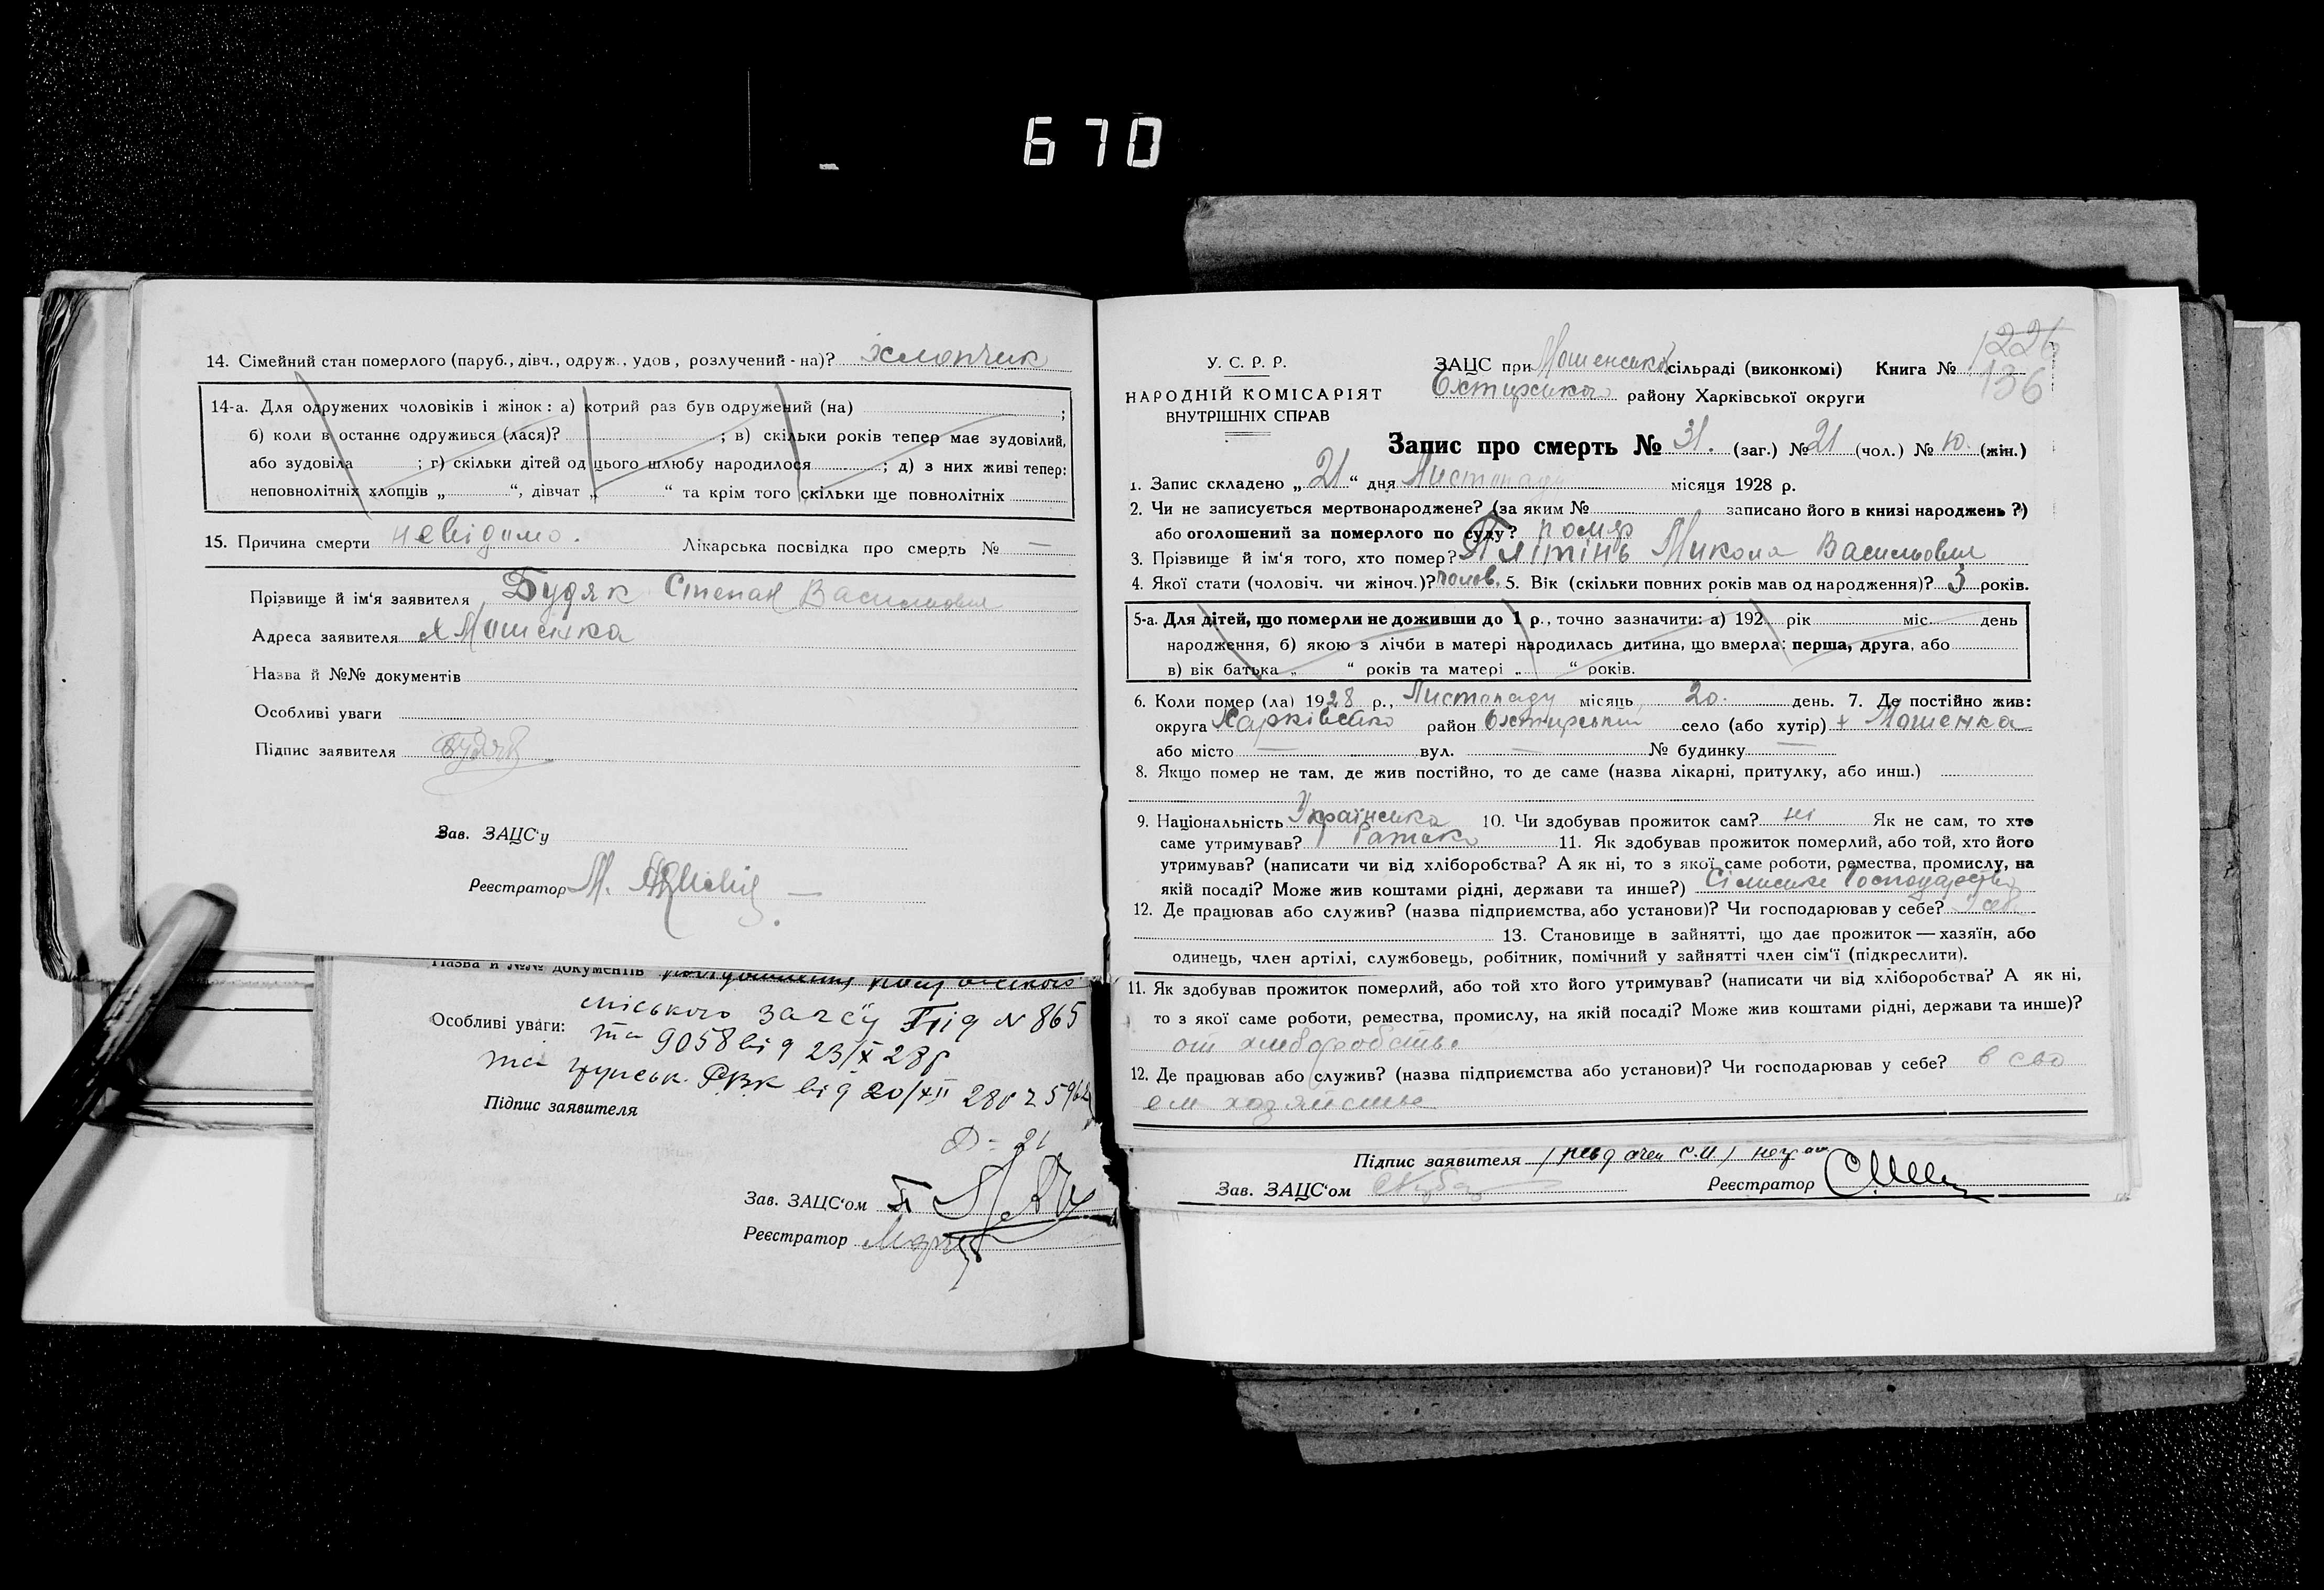 670
14. Сімейний стан померлого (паруб., дівч., одруж., удов, розлучений-на)? хлопчик
14-а. Для одружених чоловіків і жінок: а) котрий раз був одружений (на) ;
б) коли в останнє одружився (лася)? ; в) скільки років тепер має зудовілий,
або зудовіла ; г) скільки дітей од цього шлюбу народилося ; д) з них живі тепер:
неповнолітніх хлопців „ “, дівчат „ “ та крім того скільки ще повнолітніх
15. Причина смерти невідомо. Лікарська посвідка про смерть № —
Прізвище й ім'я заявителя Будяк Степан Васильович
Адреса заявителя х Мошенка
Назва й №№ документів
Особливі уваги
Підпис заявителя Будяк
Зав. ЗАЦС'у
Реєстратор М.
Назва й №№ документів
міського загсу Під N 865
Особливі уваги: та 9058 від 23/X 28р
та РВК від 20/XII 28р
Підпис заявителя
Зав. ЗАЦС'ом
Реєстратор
У. С. Р. Р.
НАРОДНІЙ КОМІСАРІЯТ
ВНУТРІШНІХ СПРАВ
ЗАЦС при Мошенській сільраді (виконкомі) Книга №
226
136
Охтирського району Харківської округи
Запис про смерть № 31. (заг.) № 21 (чол.) № 10. (жін.)
1. Запис складено „ 21 “ дня Листопаду місяця 1928 р.
2. Чи не записується мертвонароджене? (за яким № записано його в книзі народжень?)
або оголошений за померлого по суду? помер
3. Прізвище й ім'я того, хто помер? Микола Васильович
4. Якої стати (чоловіч. чи жіноч.)? чолов. 5. Вік (скільки повних років мав од народження)? 3 років.
5-а. Для дітей, що померли не доживши до 1 р., точно зазначити: а) 192 рік міс. день
народження, б) якою з лічби в матері народилась дитина, що вмерла: перша, друга, або
в) вік батька „ “ років та матері „ “ років.
6. Коли помер (ла) 1928 р., Листопаду місяць 20. день. 7. Де постійно жив:
округа Харківська район Охтирський село (або хутір) х Мошенка
або місто — вул. — № будинку —
8. Якщо помер не там, де жив постійно, то де саме (назва лікарні, притулку, або инш.)
9. Національність Українська 10. Чи здобував прожиток сам? ні Як не сам, то хто
саме утримував? Батько 11. Як здобував прожиток померлий, або той, хто його
утримував? (написати чи від хліборобства? А як ні, то з якої саме роботи, ремества, промислу, на
якій посаді? Може жив коштами рідні, держави та инше?) Сільське Господарство
12. Де працював або служив? (назва підприємства, або установи)? Чи господарював у себе? У себе
13. Становище в зайнятті, що дає прожиток — хазяїн, або
одинець, член артілі, службовець, робітник, помічний у зайнятті член сім'ї (підкреслити).
11. Як здобував прожиток померлий, або той хто його утримував? (написати чи від хліборобства? А як ні,
то з якої саме роботи, ремества, промислу, на якій посаді? Може жив коштами рідні, держави та инше)?
от хлеборобства
12. Де працював або служив? (назва підприємства або установи)? Чи господарював у себе? в сво
ем хазяйстве
Підпис заявителя
Зав. ЗАЦС'ом Реєстратор